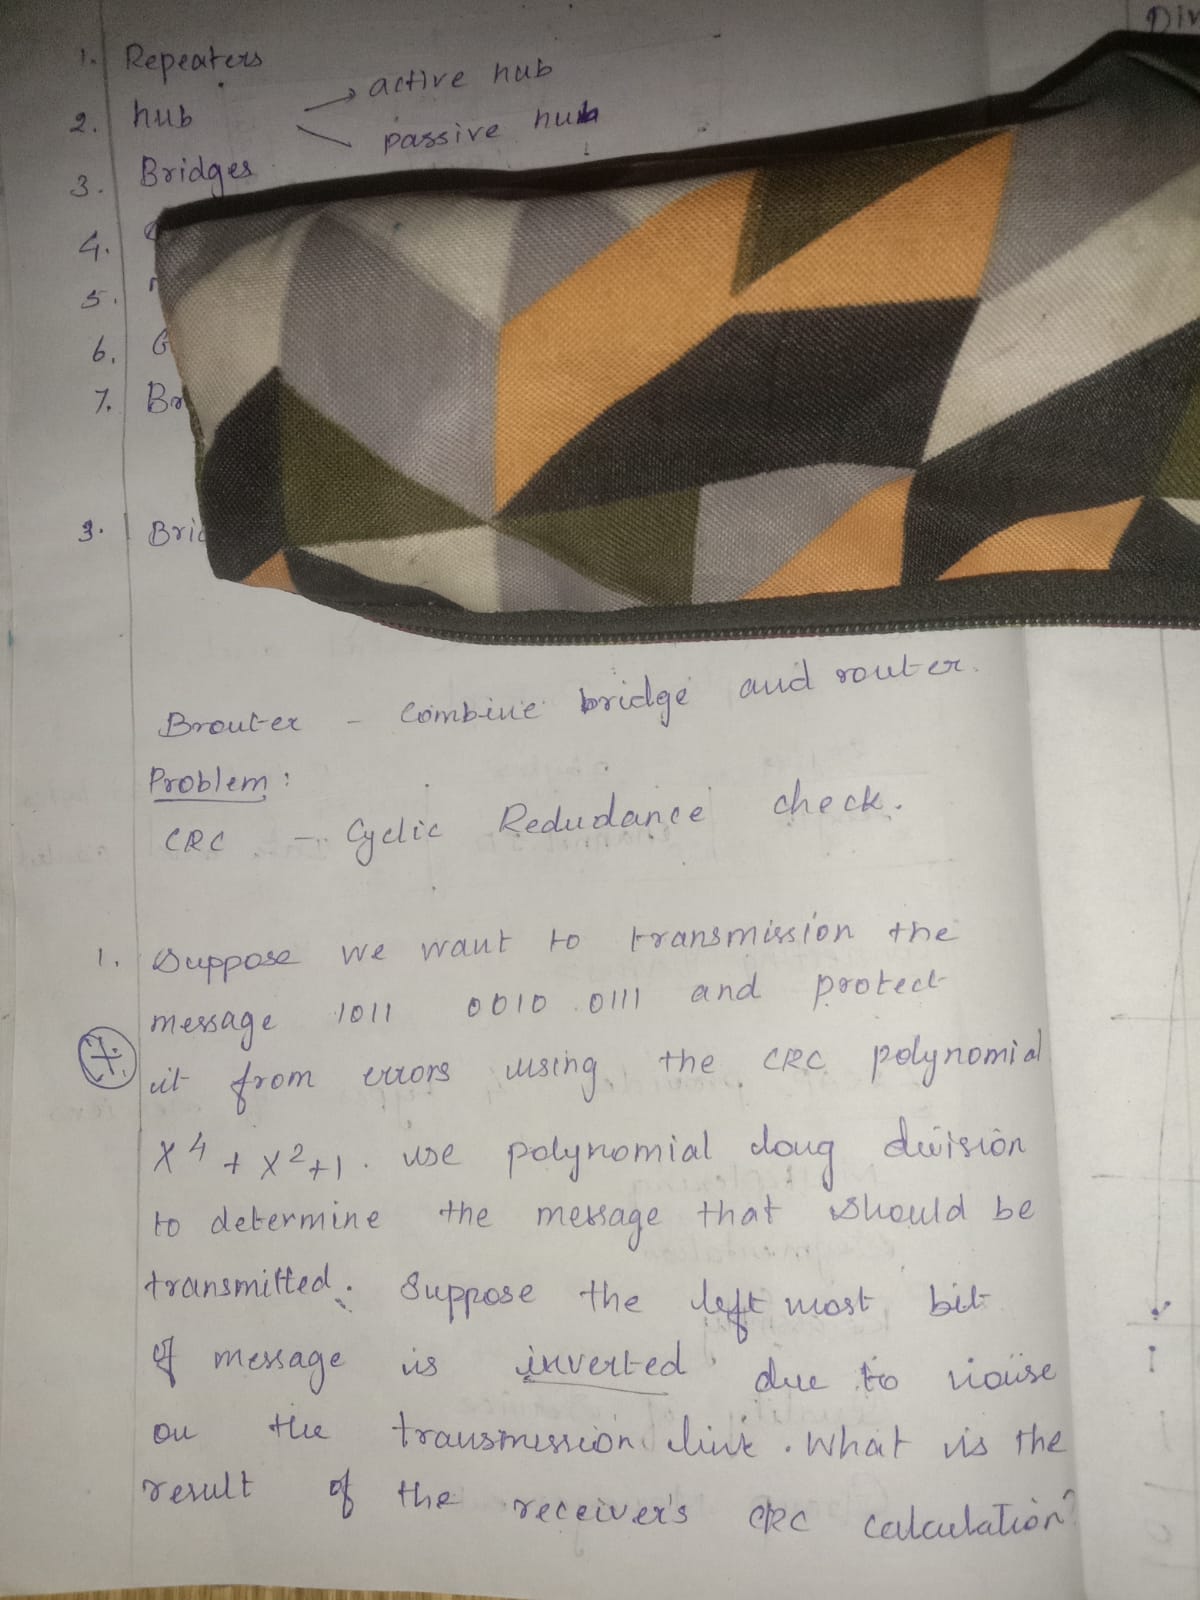 Div
1. Repeaters
2. hub → active hub
passive hub
3. Bridges
4.
5.
6. G
7. Br
3. Brid
Brouter - Combine bridge and router.
Problem :
CRC - Cyclic Redudance check.
1. Suppose we want to transmission the
message 1011 0010 0111 and protect
it from errors using the CRC polynomial
X⁴ + X² + 1. use polynomial long division
to determine the message that should be
transmitted. Suppose the left most bit
of message is inverted due to noise
on the transmission link. What is the
result of the receiver's CRC calculation?